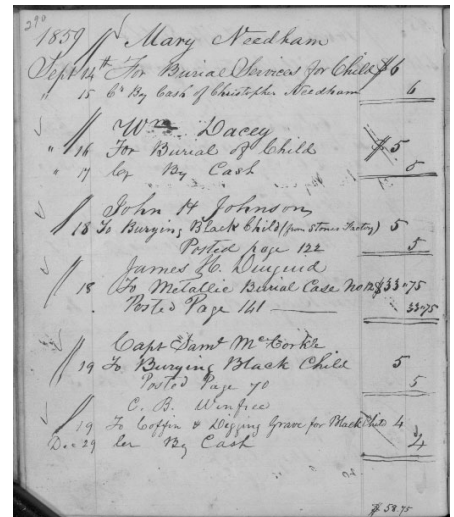 290
1859 Mary Needham
Sept 14th For Burial Services for Child $6
" 15 Cr By Cash of Christopher Needham 6
Wm Dacey
" 16 For Burial of Child $5
" 17 Cr By Cash 5
John H Johnson
18 To Burying Black Child (from Stones Factory) 5
Posted page 122 5
James H. Diuguid
18 To Metallic Burial Case No $33"75
Posted Page 141 33"75
Capt Saml McCorkle
19 To Burying Black Child 5
Posted Page 70 5
C. B. Winfree
19 To Coffin & Digging Grave for Black Child 4
Dec 29 Cr By Cash 4
$58.75